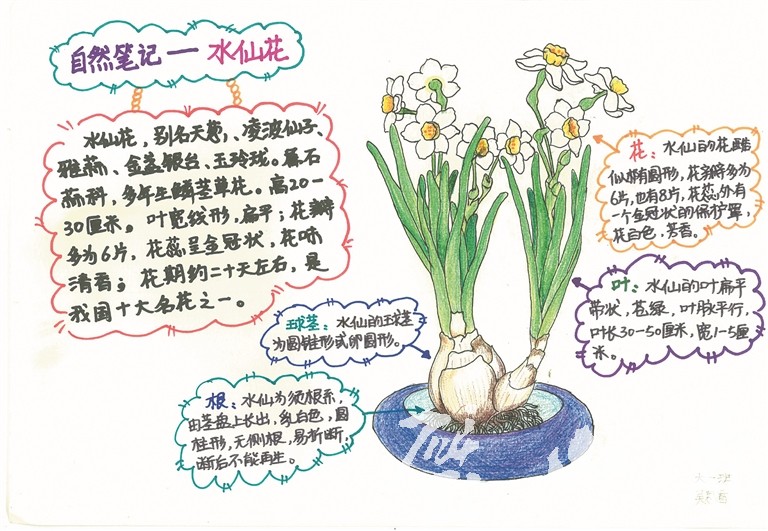 自然笔记一 水仙花
水仙花，别名天葱、凌波仙子、
雅蒜、金盏银台、玉玲珑。属石
蒜科，多年生鳞茎草花。高20一
30厘米。叶宽线形，扁平；花瓣
多为6片，花蕊呈金冠状，花味
清香；花期约二十天左右，是
我国十大名花之一。
花：水仙的花酷
似椭圆形，花瓣多为
6片，也有8片，花蕊外有
一个金冠状的保护罩，
花白色，芳香。
叶：水仙的叶扁平
带状，苍绿，叶脉平行，
叶长30-50厘米，宽1-5厘
米。
球茎：水仙的球茎
为圆锥形或卵圆形。
根：水仙为须根系，
由茎盘上长出，乳白色，圆
柱形，无侧根，易折断，
断后不能再生。